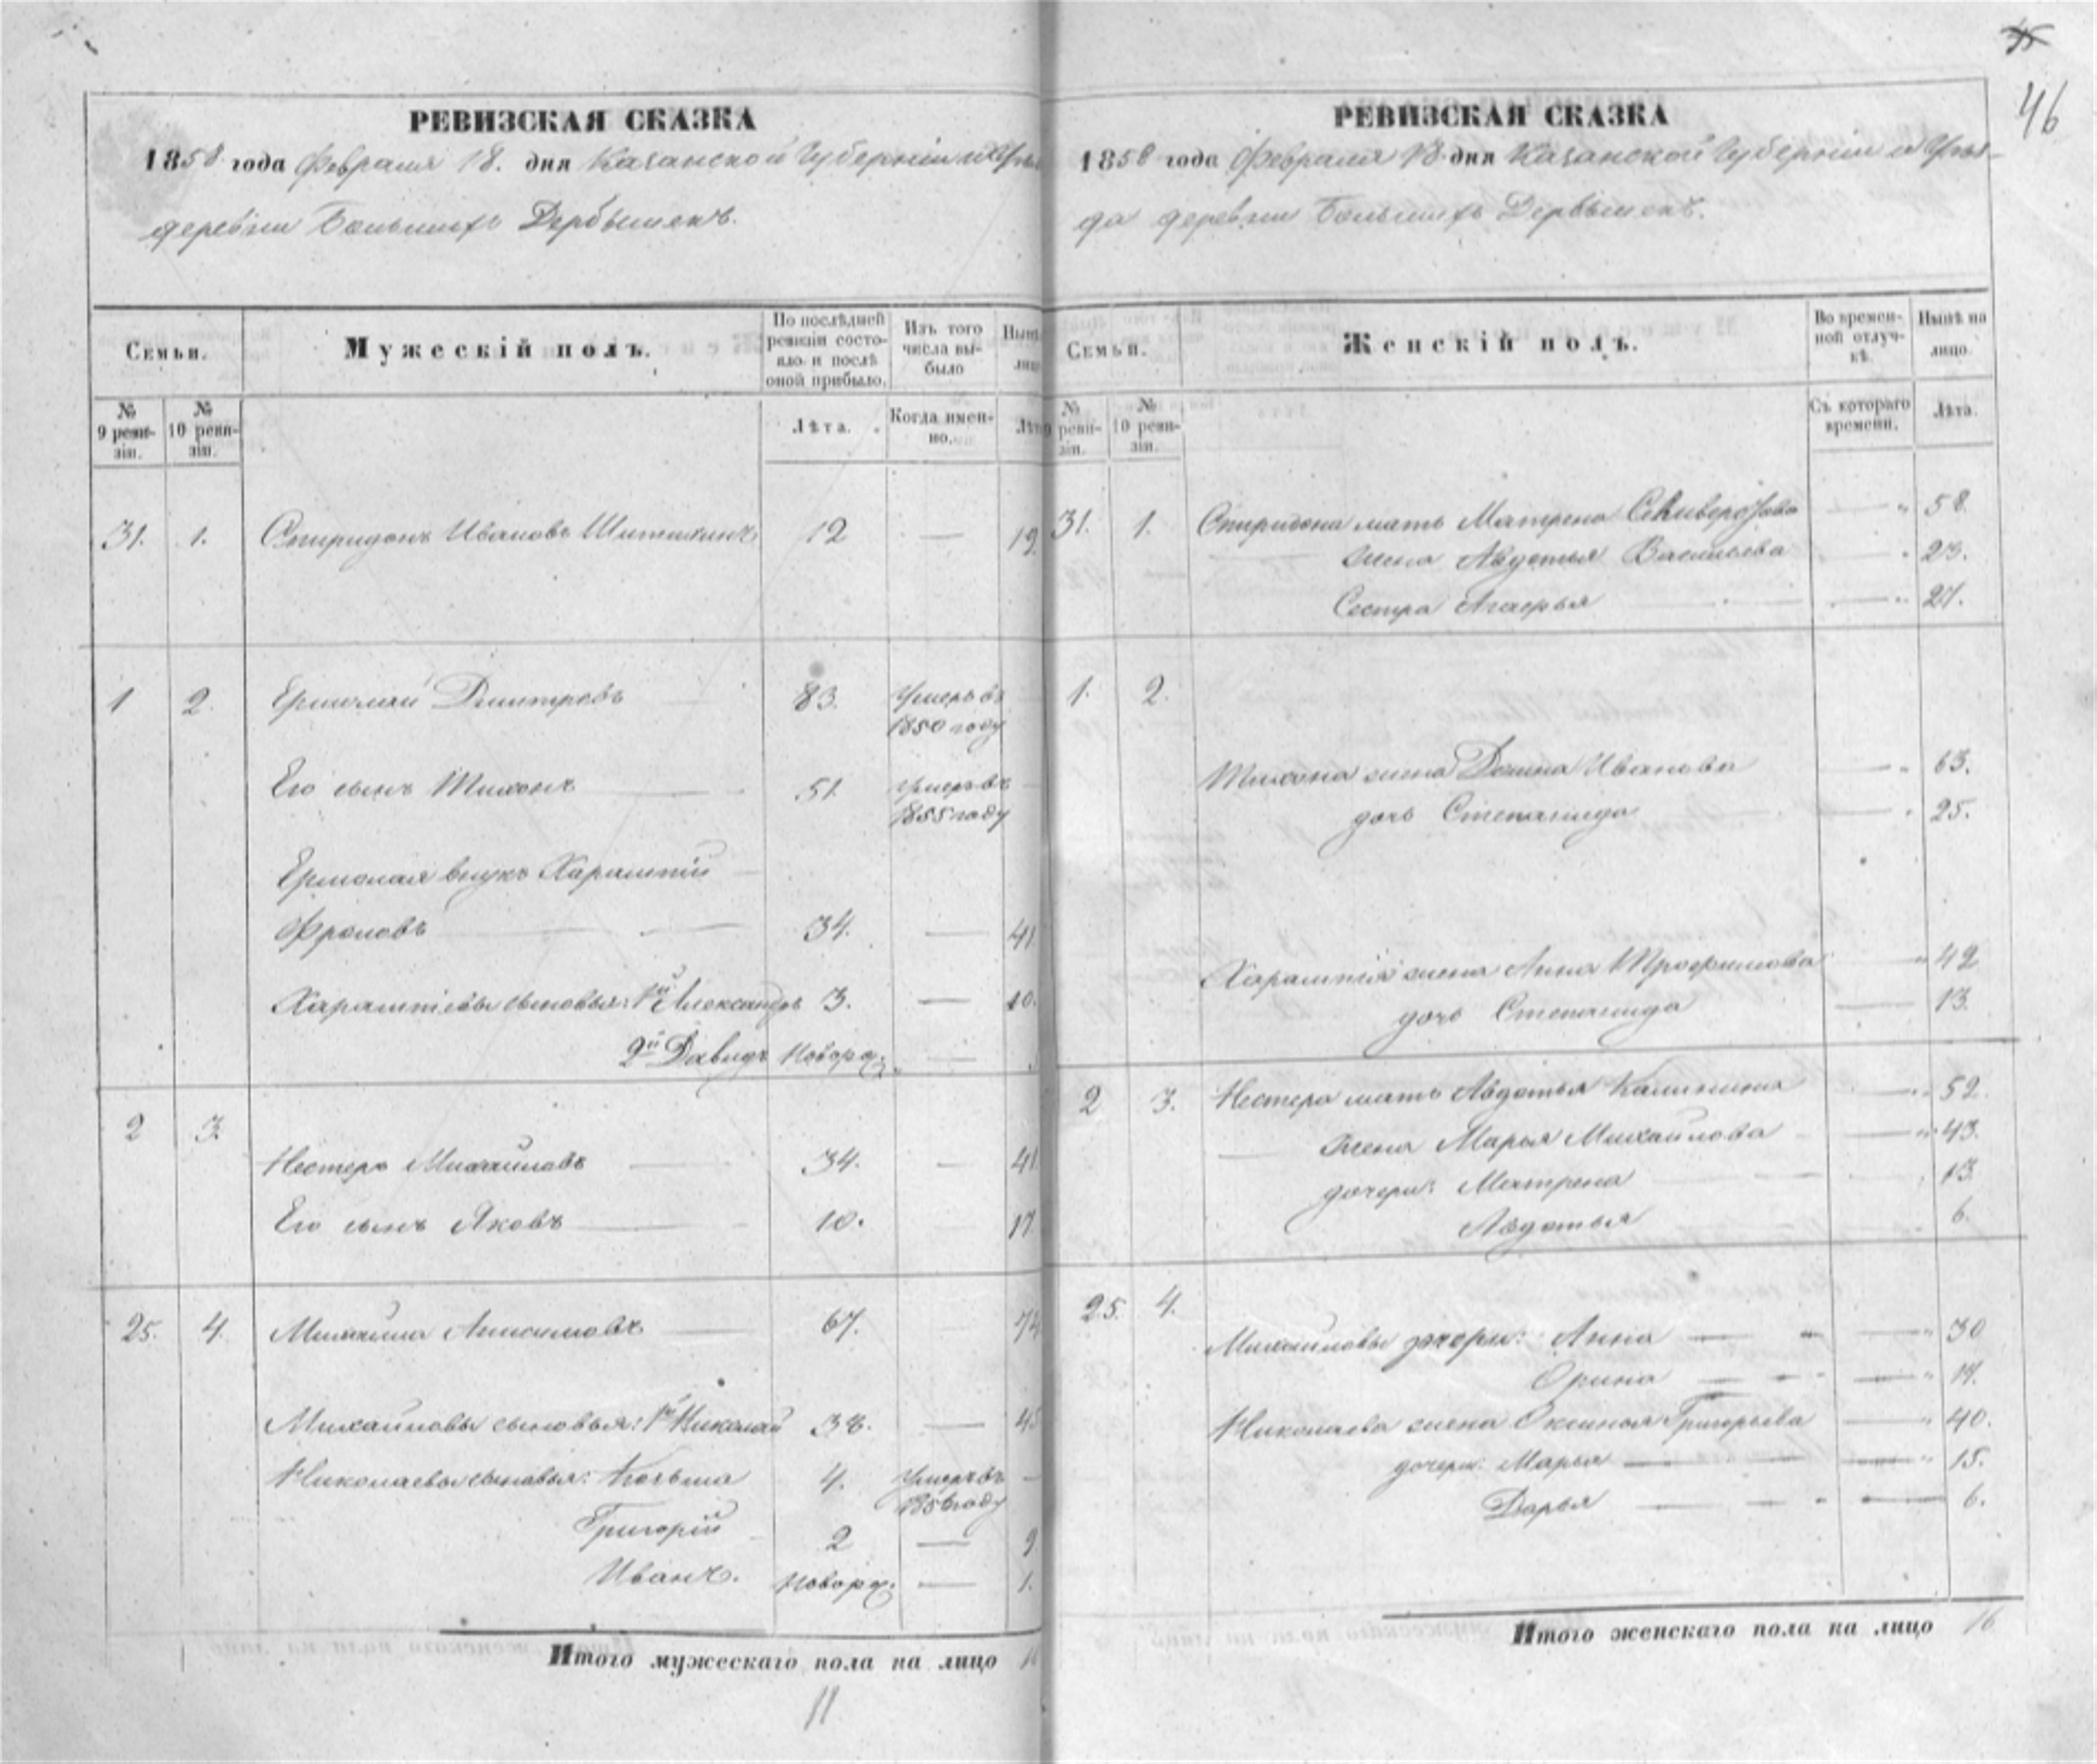 35
46
РЕВИЗСКАЯ СКАЗКА
1858 года Февраля 18. дня Казанской Губерніи и Уѣз
деревни Большихъ Дербышекъ.
Семьи.
Мужескій полъ.
По послѣдней ревизіи состояло и послѣ оной прибыло.
Изъ того числа выбыло
Нынѣ
лицо
№ 9 ревизіи.
№ 10 ревизіи.
Лѣта.
Когда именно.
Лѣт
31. 1. Спиридонъ Ивановъ Шишкинъ 12 — 19.
1 2. Ермолай Дмитревъ 83. Умеръ въ
1850 году
Его сынъ Тихонъ — 51. Умеръ въ
1855 году
Ермолая внукъ Харлампій
Фроловъ — 34. — 41.
Харлампіевы сыновья: 1й Александръ 3. — 10.
2й Давидъ Новорож. —
2 3.
Нестеръ Михайловъ — 34. — 41.
Его сынъ Яковъ — 10. 17.
25. 4. Михайла Анисимовъ — 67. 74
Михайловы сыновья: 1й Николай 38. — 45
Николаевы сыновья: Козьма 4. Умеръ въ —
1856 году
Григорій 2 — 9
Иванъ. Новорож. — 1.
Итого мужескаго пола на лицо
11
РЕВИЗСКАЯ СКАЗКА
1858 года Февраля 18 дня Казанской Губерніи и Уѣз-
да деревни Большихъ Дербышекъ.
Семьи.
Женскій полъ.
Во временной отлучкѣ.
Нынѣ на лицо.
№ ревизіи.
№ 10 ревизіи.
Съ котораго времени.
Лѣта.
31. 1. Спиридона мать Матрена Селиверстова — 58
— жена Авдотья Васильева — 23.
Сестра — 27.
1. 2.
Тихона жена Домна Иванова — 63.
дочь Степанида — 25.
Харлампія жена Анна Трофимова — 42
дочь Степанида — 13.
2 3. Нестера мать Авдотья Калинина — 59.
— жена Марья Михайлова — 43.
дочери: Матрена — 13.
Авдотья 6.
25. 4.
Михайловы дочери: Анна — 30
Орина — 17.
Николаева жена Аксинья Григорьева — 40.
дочери: Марья — 15.
Дарья — 6.
Итого женскаго пола на лицо 16